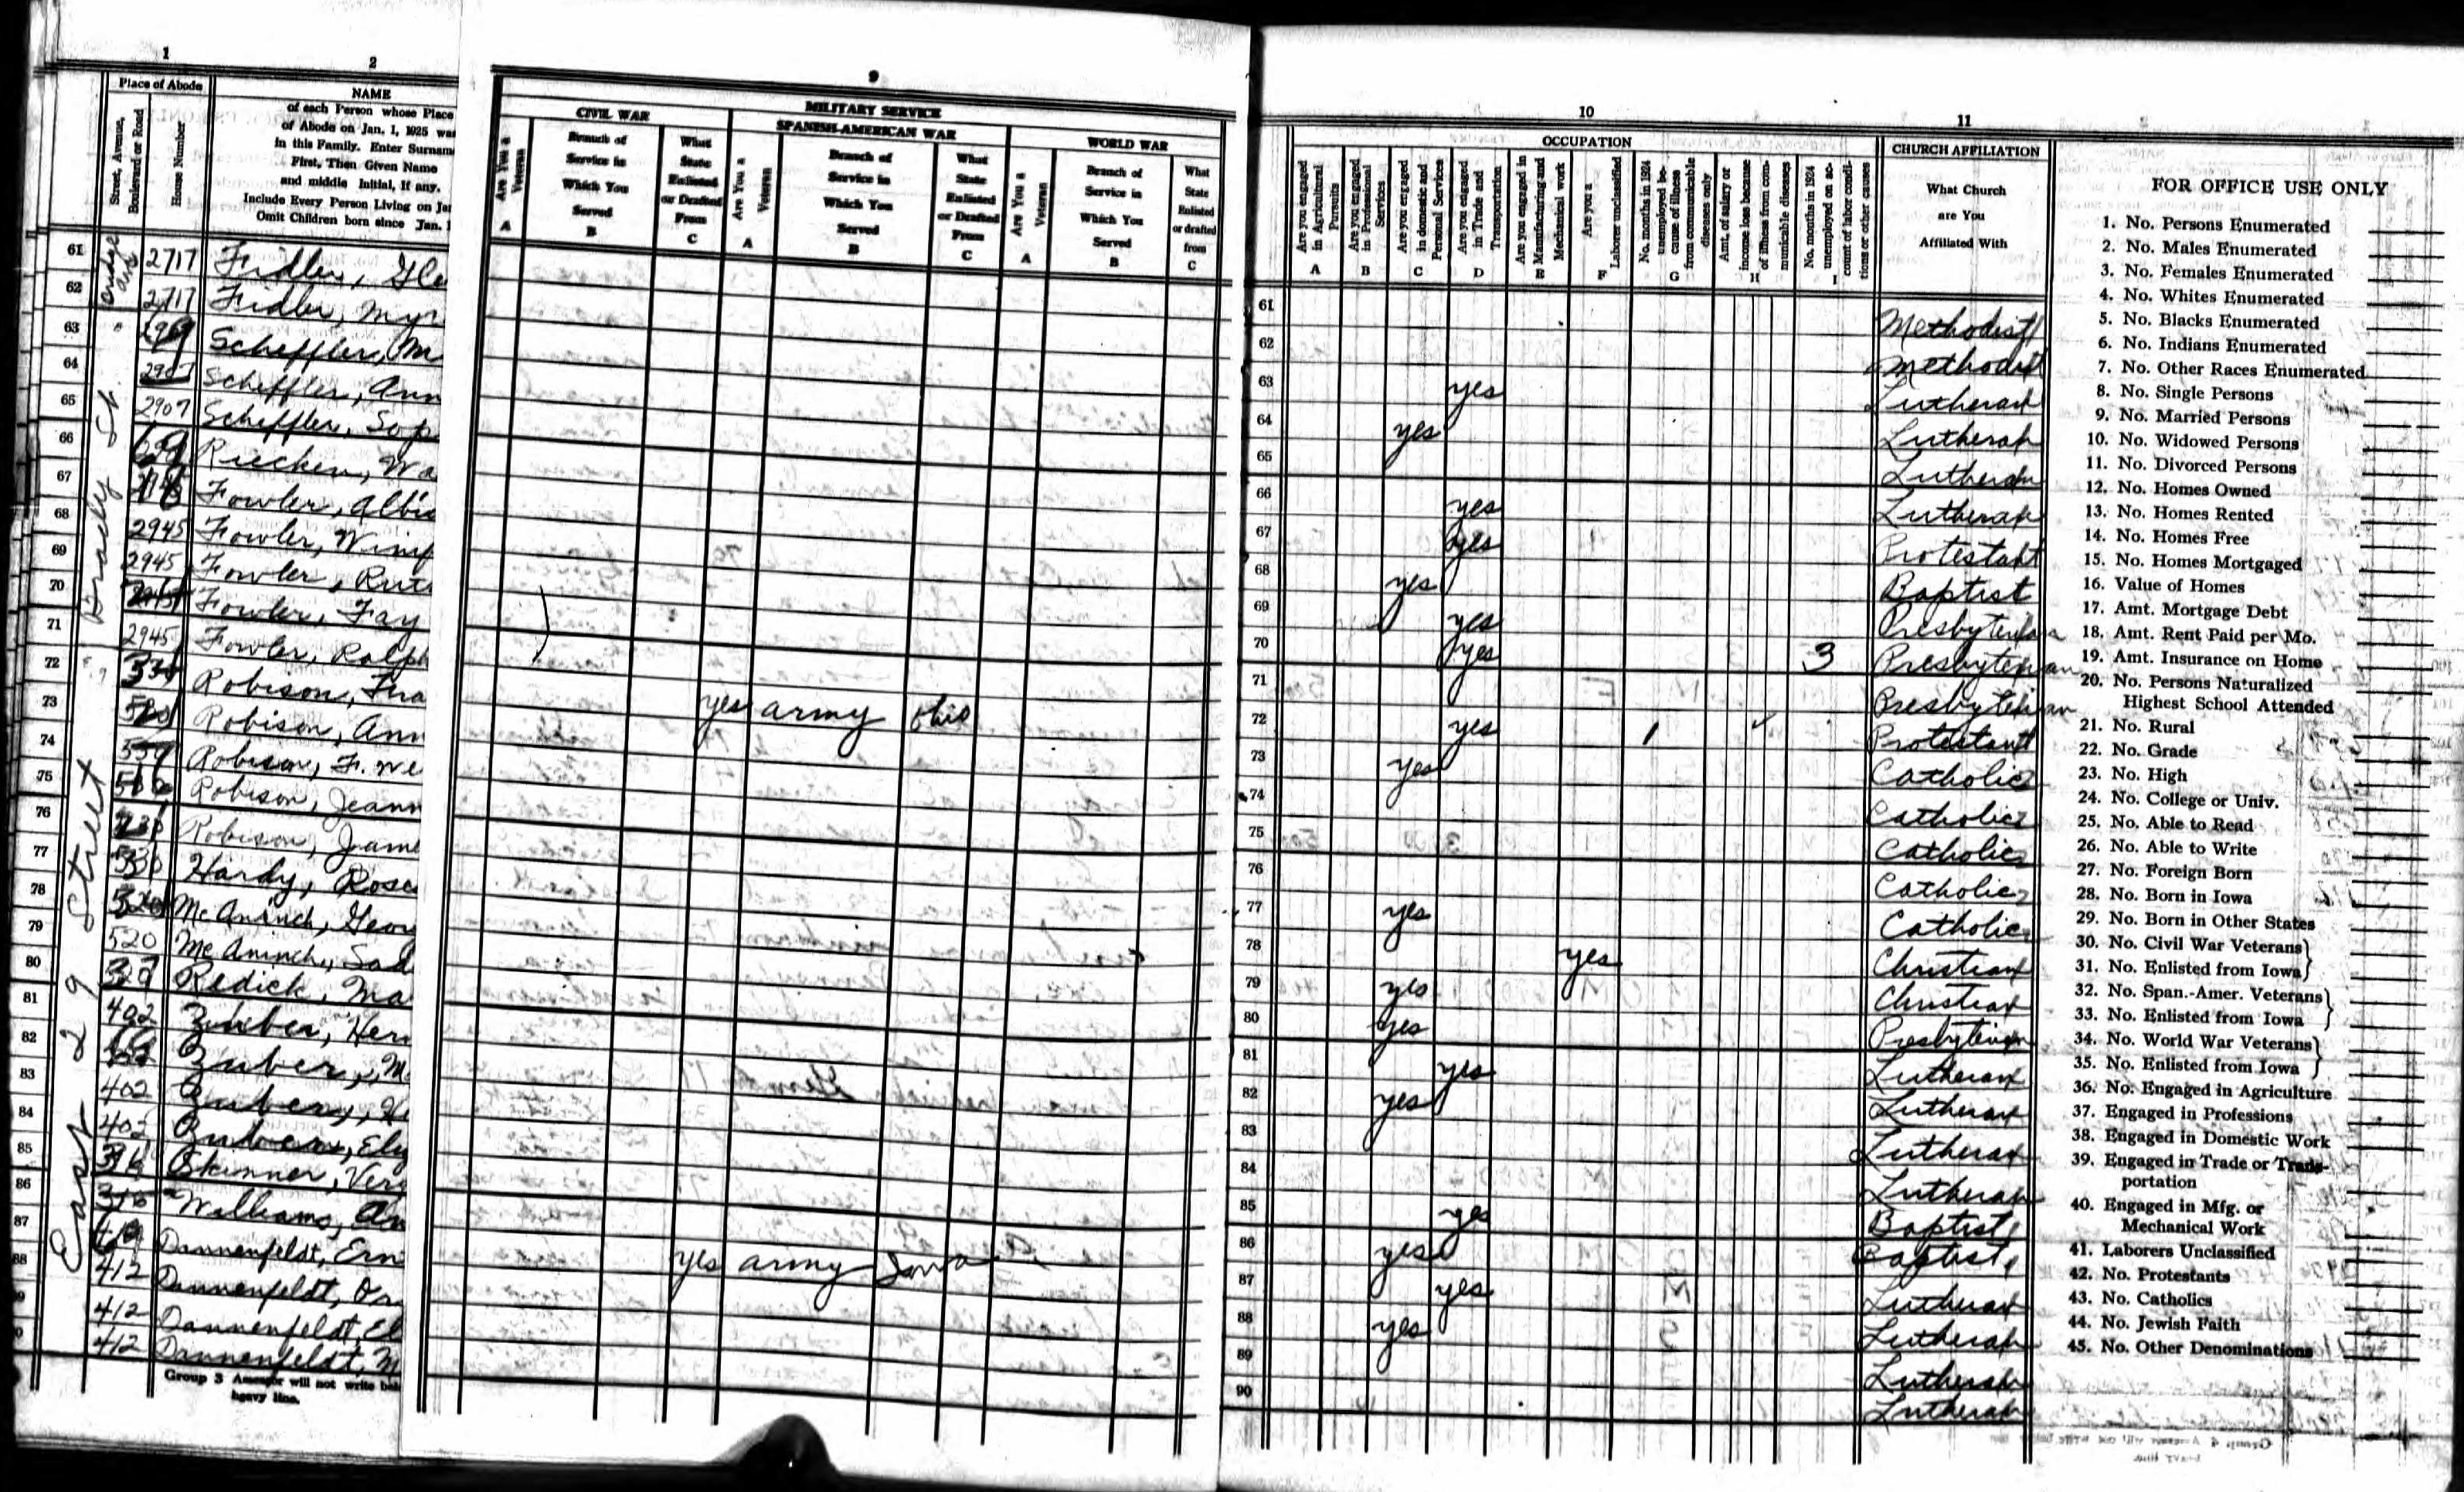 1
2
Place of Abode
Street, Avenue, Boulevard or Road
House Number
NAME
of each Person whose Place
of Abode on Jan. 1, 1925 was
in this Family. Enter Surname
First, Then Given Name
and middle Initial, if any.
Include Every Person Living on Jan
Omit Children born since Jan. 1
61 2717 Fidler, Gle
62 2717 Fidler, Myr
63 Scheffler, M
64 2907 Scheffler, Ann
65 2907 Scheffler, Sop
66 Riecken, Wa
67 Fowler, Albi
68 2945 Fowler, Winif
69 2945 Fowler, Ruth
70 2945 Fowler, Fay
71 2945 Fowler, Ralph
72 Robison, Fra
73 Robison, Ann
74 Robison, F. We
75 Robison, Jeann
76 Robison, Jame
77 530 Hardy, Rose
78 520 McAninch, Geor
79 520 McAninch, Sad
80 Redick, Ma
81 402 Zuber, Her
82 Zuber, M
83 402 Zuber, He
84 402 Zuber, Ely
85 316 Skinner, Verg
86 316 Williams, An
87 Dannenfeldt, Ern
88 412 Dannenfeldt, Or
412 Dannenfeldt, El
412 Dannenfeldt, M
Brady St.
East 29 Street
Group 3 Assessor will not write bel
heavy line.
9
MILITARY SERVICE
CIVIL WAR
Are You a Veteran
A
Branch of Service in Which You Served
B
What State Enlisted or Drafted From
C
SPANISH-AMERICAN WAR
Are You a Veteran
A
Branch of Service in Which You Served
B
What State Enlisted or Drafted From
C
WORLD WAR
Are You a Veteran
A
Branch of Service in Which You Served
B
What State Enlisted or drafted from
C
yes army Ohio
yes army Iowa
10
OCCUPATION
Are you engaged in Agricultural Pursuits
A
Are you engaged in Professional Services
B
Are you engaged in domestic and Personal Services
C
Are you engaged in Trade and Transportation
D
Are you engaged in Manufacturing and Mechanical work
E
Are you a Laborer unclassified
F
No. months in 1924 unemployed because of illness from communicable diseases only
G
Amt. of salary or income loss because of illness from communicable diseases
H
No. months in 1924 unemployed on account of labor conditions or other causes
I
11
CHURCH AFFILIATION
What Church
are You
Affiliated With
61 Methodist
62 Methodist
63 yes Lutheran
64 yes Lutheran
65 Lutheran
66 yes Lutheran
67 yes Protestant
68 yes Baptist
69 yes Presbyterian
70 yes 3 Presbyterian
71 Presbyterian
72 yes 1 Protestant
73 yes Catholic
74 Catholic
75 Catholic
76 Catholic
77 yes Catholic
78 yes Christian
79 yes Christian
80 yes Presbyterian
81 yes Lutheran
82 yes Lutheran
83 Lutheran
84 Lutheran
85 yes Baptist
86 yes Baptist
87 yes Lutheran
88 yes Lutheran
89 Lutheran
90 Lutheran
FOR OFFICE USE ONLY
1. No. Persons Enumerated
2. No. Males Enumerated
3. No. Females Enumerated
4. No. Whites Enumerated
5. No. Blacks Enumerated
6. No. Indians Enumerated
7. No. Other Races Enumerated
8. No. Single Persons
9. No. Married Persons
10. No. Widowed Persons
11. No. Divorced Persons
12. No. Homes Owned
13. No. Homes Rented
14. No. Homes Free
15. No. Homes Mortgaged
16. Value of Homes
17. Amt. Mortgage Debt
18. Amt. Rent Paid per Mo.
19. Amt. Insurance on Home
20. No. Persons Naturalized
Highest School Attended
21. No. Rural
22. No. Grade
23. No. High
24. No. College or Univ.
25. No. Able to Read
26. No. Able to Write
27. No. Foreign Born
28. No. Born in Iowa
29. No. Born in Other States
30. No. Civil War Veterans
31. No. Enlisted from Iowa
32. No. Span.-Amer. Veterans
33. No. Enlisted from Iowa
34. No. World War Veterans
35. No. Enlisted from Iowa
36. No. Engaged in Agriculture
37. Engaged in Professions
38. Engaged in Domestic Work
39. Engaged in Trade or Trans-
portation
40. Engaged in Mfg. or
Mechanical Work
41. Laborers Unclassified
42. No. Protestants
43. No. Catholics
44. No. Jewish Faith
45. No. Other Denominations